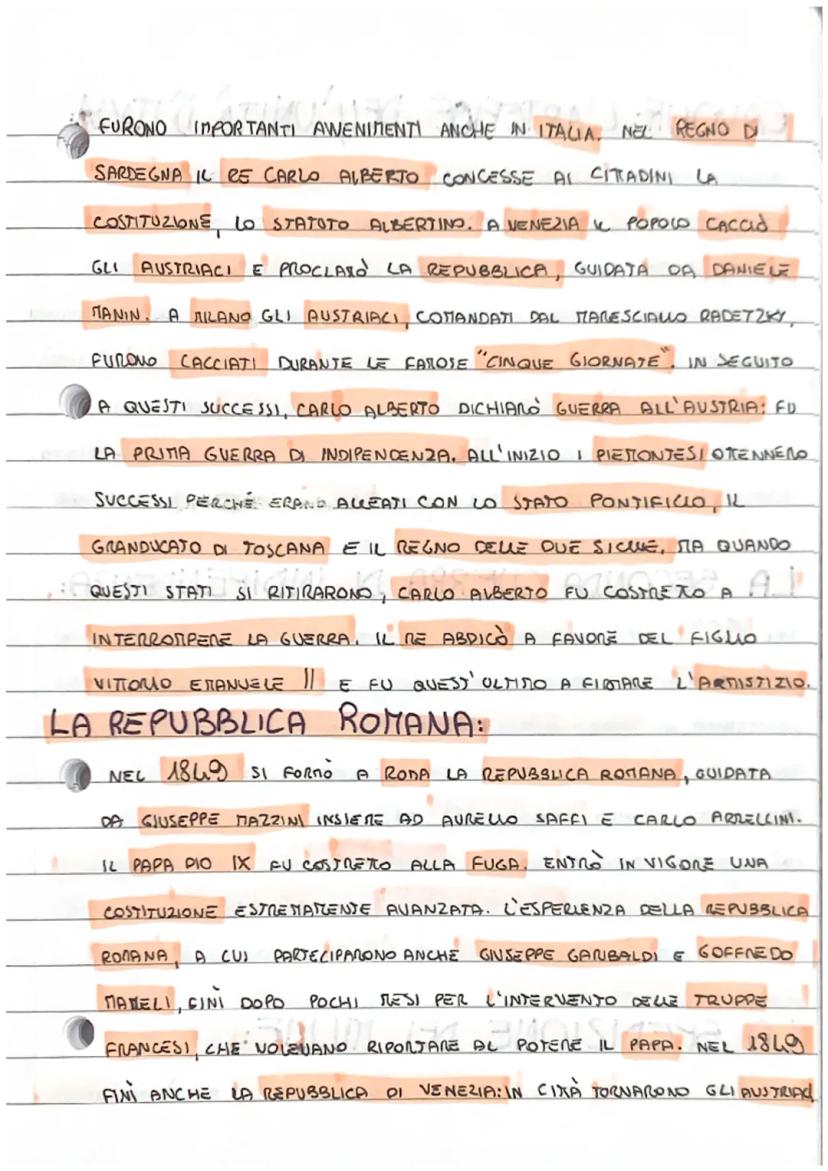 FURONO IMPORTANTI AVVENIMENTI ANCHE IN ITALIA. NEL REGNO DI
SARDEGNA IL RE CARLO ALBERTO CONCESSE AI CITTADINI LA
COSTITUZIONE, LO STATUTO ALBERTINO. A VENEZIA IL POPOLO CACCIÒ
GLI AUSTRIACI E PROCLAMÒ LA REPUBBLICA, GUIDATA DA DANIELE
MANIN. A MILANO GLI AUSTRIACI, COMANDATI DAL MARESCIALLO RADETZKY,
FURONO CACCIATI DURANTE LE FAMOSE "CINQUE GIORNATE". IN SEGUITO
A QUESTI SUCCESSI, CARLO ALBERTO DICHIARÒ GUERRA ALL'AUSTRIA: FU
LA PRIMA GUERRA DI INDIPENDENZA. ALL'INIZIO I PIEMONTESI OTTENNERO
SUCCESSI PERCHÉ ERANO ALLEATI CON LO STATO PONTIFICIO, IL
GRANDUCATO DI TOSCANA E IL REGNO DELLE DUE SICILIE. MA QUANDO
QUESTI STATI SI RITIRARONO, CARLO ALBERTO FU COSTRETTO A
INTERROMPERE LA GUERRA. IL RE ABDICÒ A FAVORE DEL FIGLIO
VITTORIO EMANUELE II E FU QUEST'ULTIMO A FIRMARE L'ARMISTIZIO.
LA REPUBBLICA ROMANA:
NEL 1849 SI FORMÒ A ROMA LA REPUBBLICA ROMANA, GUIDATA
DA GIUSEPPE MAZZINI INSIEME AD AURELIO SAFFI E CARLO ARMELLINI.
IL PAPA PIO IX FU COSTRETTO ALLA FUGA. ENTRÒ IN VIGORE UNA
COSTITUZIONE ESTREMAMENTE AVANZATA. L'ESPERIENZA DELLA REPUBBLICA
ROMANA, A CUI PARTECIPARONO ANCHE GIUSEPPE GARIBALDI E GOFFREDO
MAMELI, FINÌ DOPO POCHI MESI PER L'INTERVENTO DELLE TRUPPE
FRANCESI, CHE VOLEVANO RIPORTARE AL POTERE IL PAPA. NEL 1849
FINÌ ANCHE LA REPUBBLICA DI VENEZIA: IN CITTÀ TORNARONO GLI AUSTRIACI